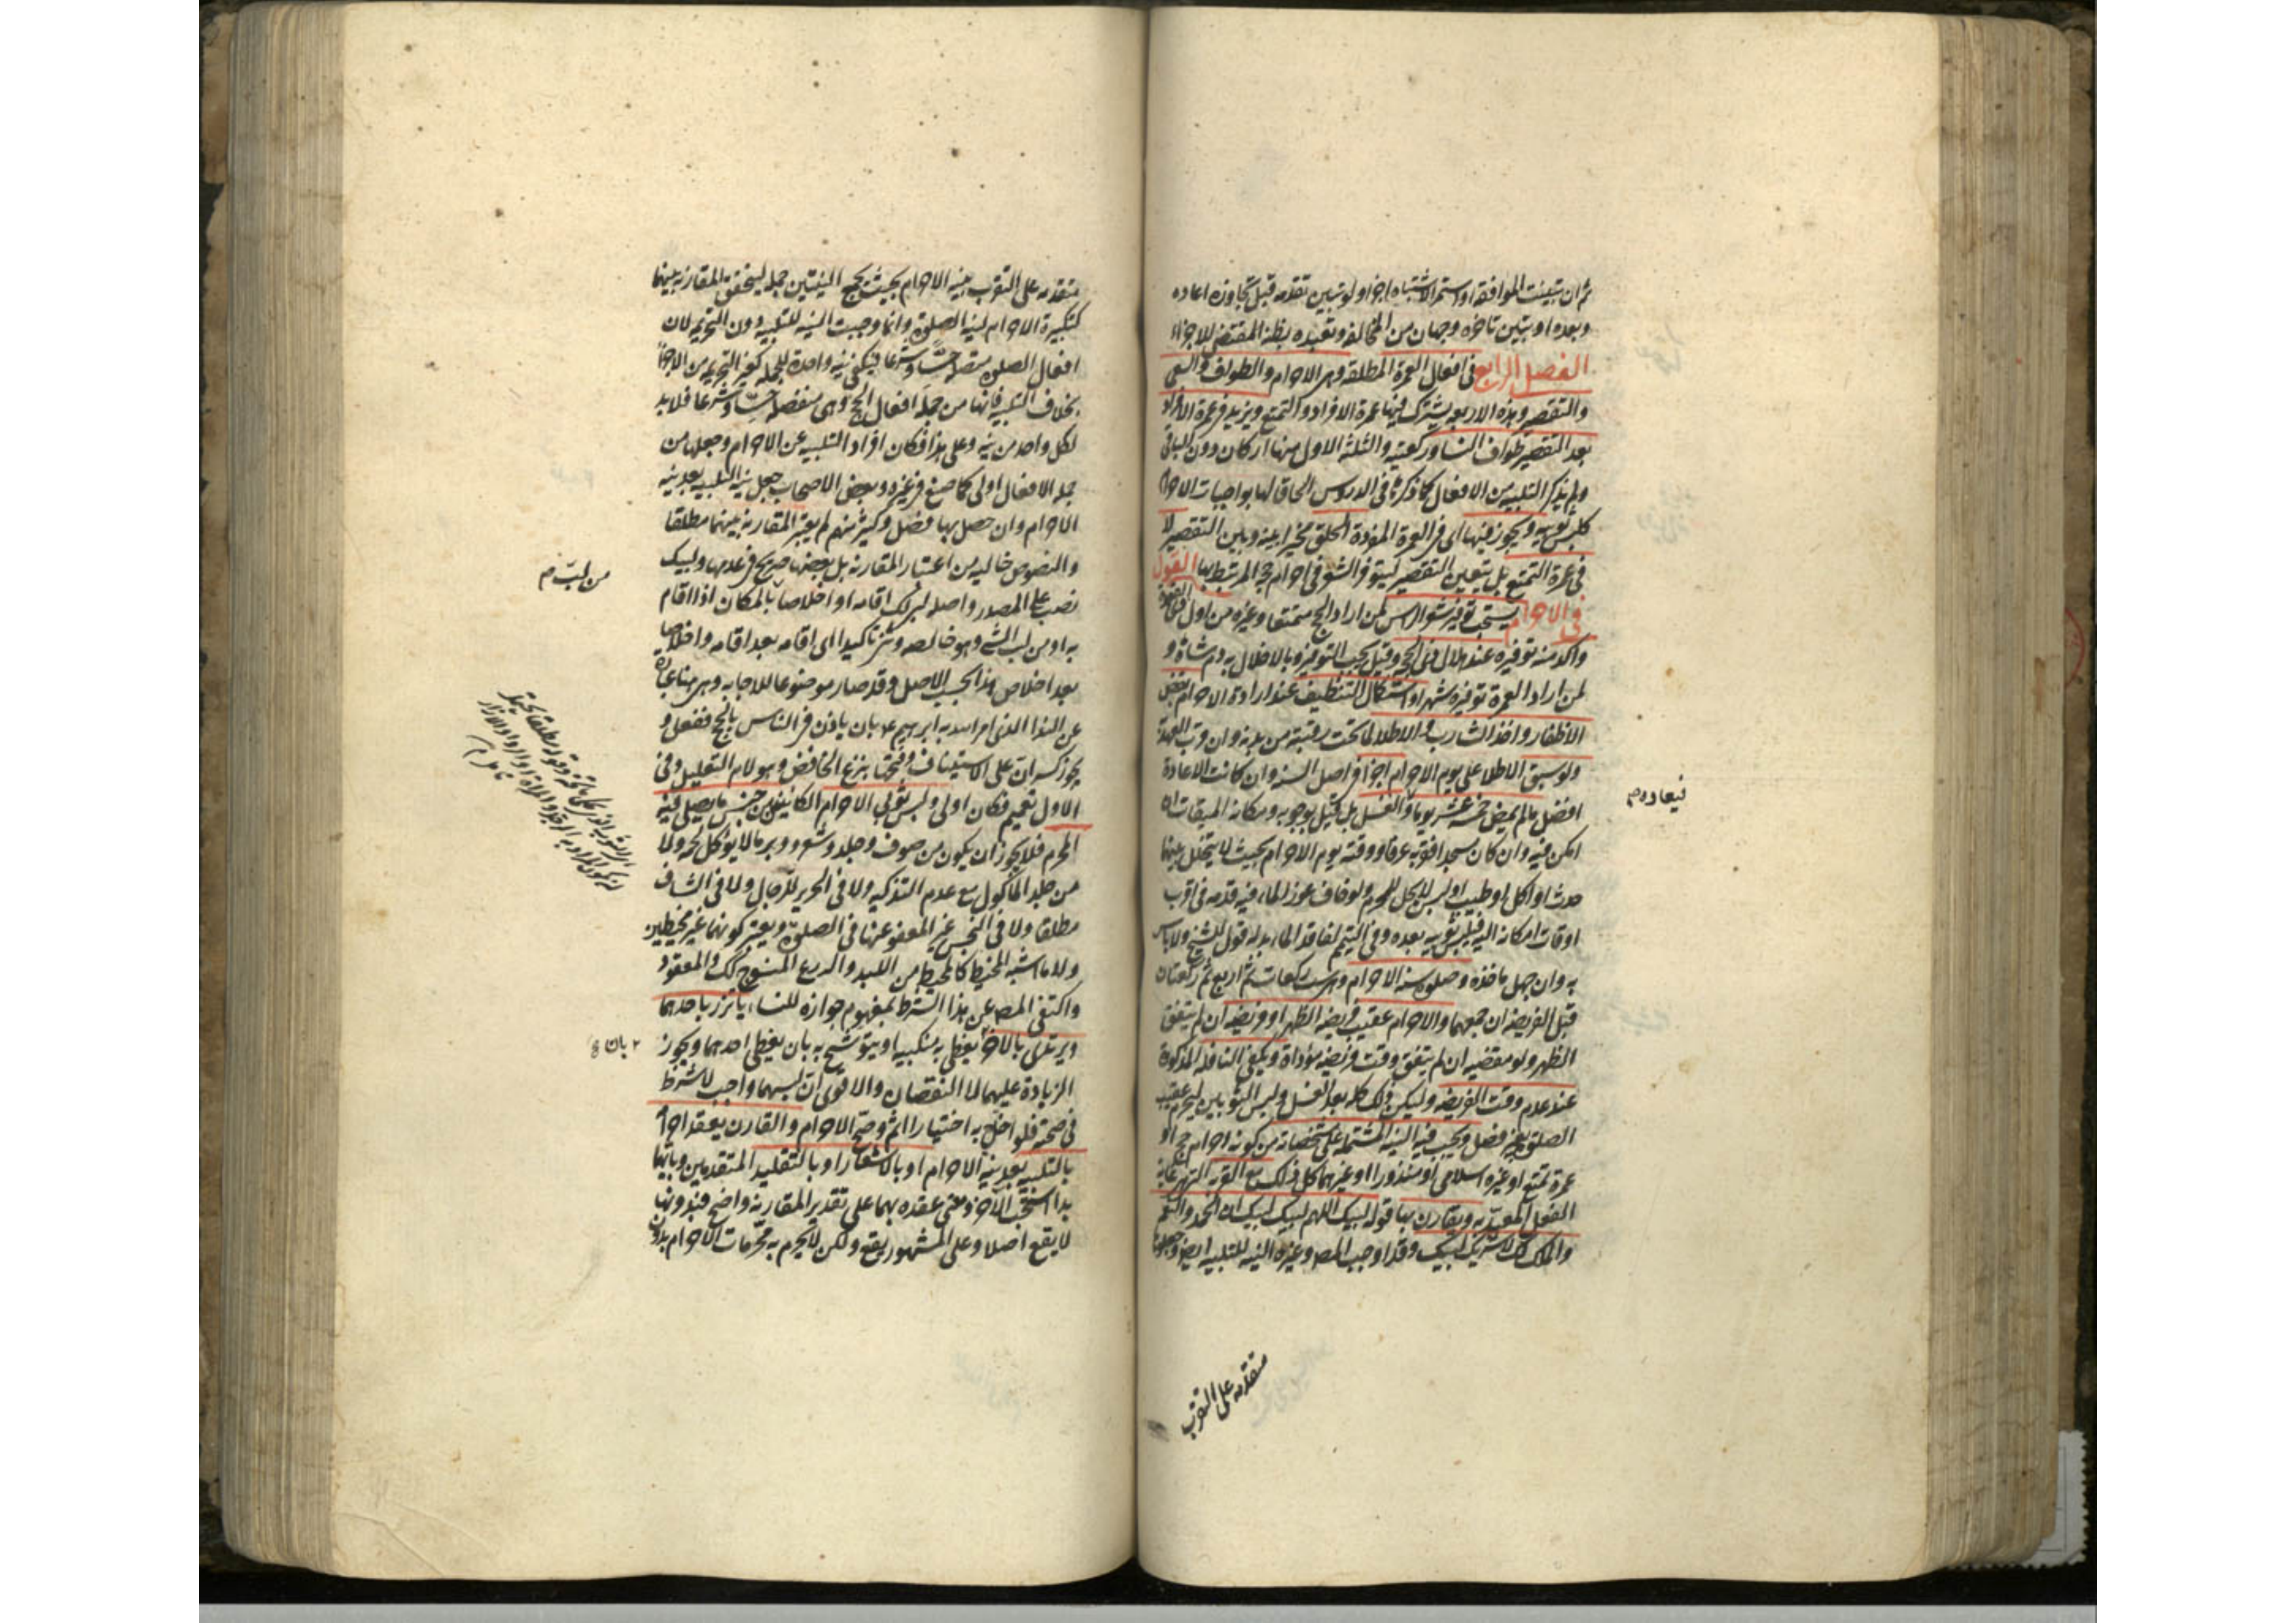 ثم ان تبينت الموافقه او استمر الاشتباه اجزا ولو تبين تقدمه قبل تجاوزه اعاده
وبعده او تبين تاخره وجهان من المخالفه وتعبده بظنه المقتضى للاجزاء
الفصل الرابع فى افعال العمرة المطلقه وهى الاحرام والطواف والسعى
والتقصير وهذه الاربعه يشترك فيها عمرة الافراد والتمتع ويزيد فى عمرة الافراد
بعد التقصير طواف النساء وركعتيه والثلثة الاول منها اركان دون الباقى
ولم يذكر التلبيه من الافعال كما ذكرها فى الدروس الحاقا لها بواجبات الاحرام
كلبس ثوبيه ويجوز فيها اى فى العمرة المفردة الحلق مخيرا بينه وبين التقصير لا
فى عمرة التمتع بل يتعين التقصير ليتوفر الشعر فى احرام حجه المرتبط بها القول
فى الاحرام يستحب توفير شعر الراس لمن اراد الحج متمتعا وغيره من اول ذى القعدة
واكد منه توفيره عند هلال ذى الحجه وقيل يجب التوفير وبالاخلال به دم شاة و
لمن اراد العمرة توفيره شهرا واستكمال التنظيف عند ارادة الاحرام بقص
الاظفار واخذ الشارب والاطلا لما تحت رقبته من بدنه وان قرب العهد به
ولو سبق الاطلا على يوم الاحرام اجزا فى اصل السنه وان كانت الاعادة
افضل ما لم يمض خمسة عشر يوما والغسل بل قيل بوجوبه ومكانه الميقات ان
امكن فيه وان كان مسجدا قربه عرفا ووقته يوم الاحرام بحيث لا يتخلل بينهما
حدث او اكل او طيب او لبس لا يحل للمحرم ولو خاف عوز الماء فيه قدمه فى اقرب
اوقات امكانه اليه فيلبس ثوبيه بعده وفى التيمم لفاقد الماء بدله قول للشيخ ولا باس
به وان جهل ماخذه وصلوة سنه الاحرام وهى ست ركعات ثم اربع ثم ركعتان
قبل الفريضه ان جمعهما والاحرام عقيب فريضه الظهر او فريضه ان لم يتفق
الظهر ولو مقضيه ان لم يتفق وقت فريضه مؤداة ويكفى النافله المذكورة
عند عدم وقت الفريضه وليكن ذلك كله بعد الغسل ولبس الثوبين ليحرم عقيب
الصلوة بغير فصل ويجب فيه النيه المشتمله على مشخصاته من كونه احرام حج او
عمرة تمتع او غيره اسلامى او منذور او غيرهما كل ذلك مع القربه التى هى غاية
الفعل المتعبد به ويقارن بها قوله لبيك اللهم لبيك لبيك ان الحمد والنعمة
والملك لك لا شريك لك لبيك وقد اوجب المص وغيره النيه للتلبيه ايضا وجعلوها
فيعاد ده م
متقدمه على التقرب
متقدمه على التقرب بنيه الاحرام بحيث يجمع النيتين جمله ليتحقق المقارنه بينهما
كتكبيرة الاحرام لنيه الصلوة وانما وجبت النيه للتلبيه دون التحريم لان
افعال الصلوة متصله حسا وشرعا فيكفى نيه واحدة للجمله كغير التحريم من الاجزا
بخلاف التلبيه فانها من جمله افعال الحج وهى منفصله حسا وشرعا فلا بد
لكل واحد من نيه وعلى هذا فكان افراد التلبيه عن الاحرام وجعلها من
جمله الافعال اولى كما صنع فى غيره وبعض الاصحاب جعل نيه التلبيه بعد نيه
الاحرام وان حصل بها فصل وكثير منهم لم يعتبر المقارنه بينهما مطلقا
والنصوص خاليه من اعتبار المقارنه بل بعضها صريح فى عدمها ولبيك
نصب على المصدر واصله لبا لك اقامه او اخلاصا بالمكان اذا اقام
به او من لب الشى وهو خالصه وثنى تاكيدا اى اقامه بعد اقامه واخلاصا
بعد اخلاص هذا بحسب الاصل وقد صار موضوعا للاجابه وهى هنا عبارة
عن الندا الذى امر الله به ابرهيم ع بان ياذن فى الناس بالحج ففعل و
يجوز كسر ان على الاستيناف وفتحها بنزع الخافض وهو لام التعليل وفى
الاول تعميم فكان اولى ولبس ثوبى الاحرام الكائنين من جنس ما يصلى فيه
المحرم فلا يجوز ان يكون من صوف وجلد وشعر ووبر ما لا يؤكل لحمه ولا
من جلد الماكول مع عدم التذكيه ولا فى الحرير للرجال ولا فى الشاف
مطلقا ولا فى النجس غير المعفو عنها فى الصلوة ويعتبر كونهما غير مخيطين
ولا ما اشبه المخيط كالمحيط من اللبد والدرع المنسوج كك والمعقود
واكتفى المص عن هذا الشرط بمفهوم جوازه للنساء ياتزر باحدهما
ويرتدى بالاخر يغطى به منكبيه او يتوشح به بان يغطى احدهما ويجوز
الزيادة عليهما لا النقصان والاقوى ان لبسهما واجب لا شرط
فى صحته فلو اخل به اختيارا اثم وصح الاحرام والقارن يعقد احرامه
بالتلبيه بعد نيه الاحرام او بالاشعار او بالتقليد المتقدمين وبايهما
بدا استحب الاخر ومعنى عقده بهما على تقدير المقارنه واضح فبدونها
لا يقع اصلا وعلى المشهور يقع ولكن لا يحرم به محرمات الاحرام بدون
من لب م
بان